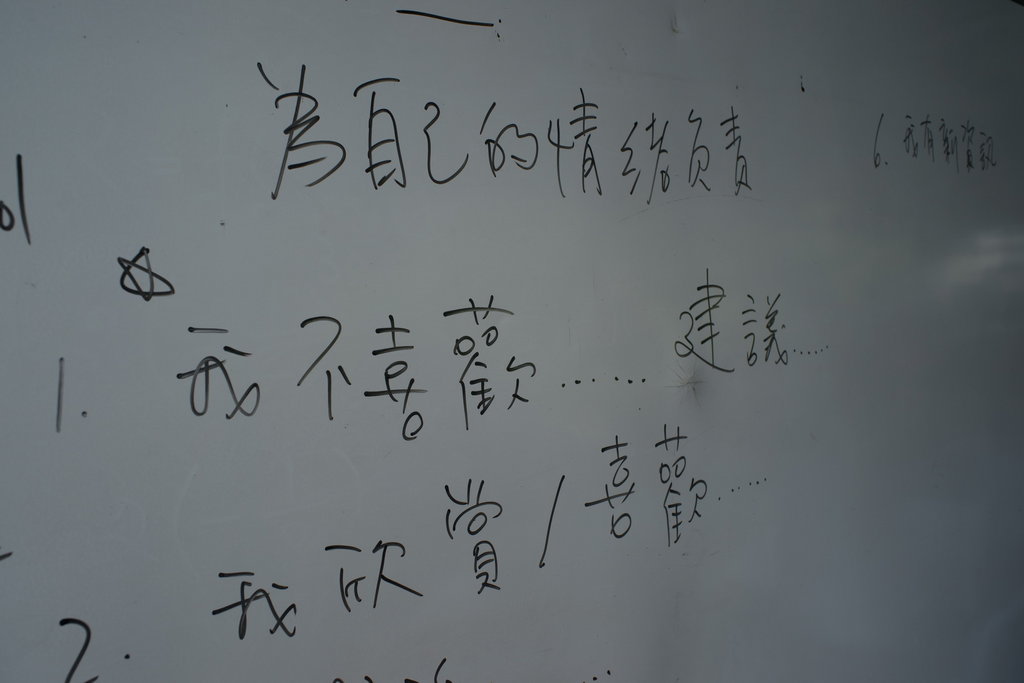 為自己的情緒負責
6. 我有新資訊
1. 我不喜歡...... 建議......
我欣賞/喜歡......
2.